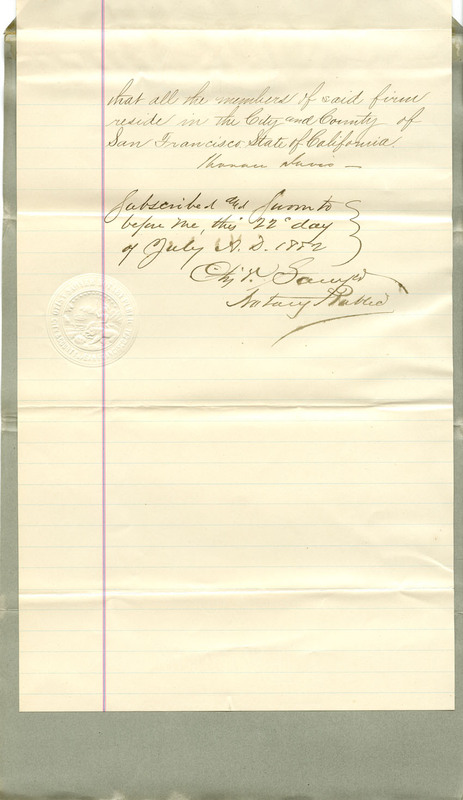 that all the members of said firm
reside in the City and County of
San Francisco State of California.
Subscribed and Sworn to
before me, this 22d day
of July A. D. 1882
Notary Public